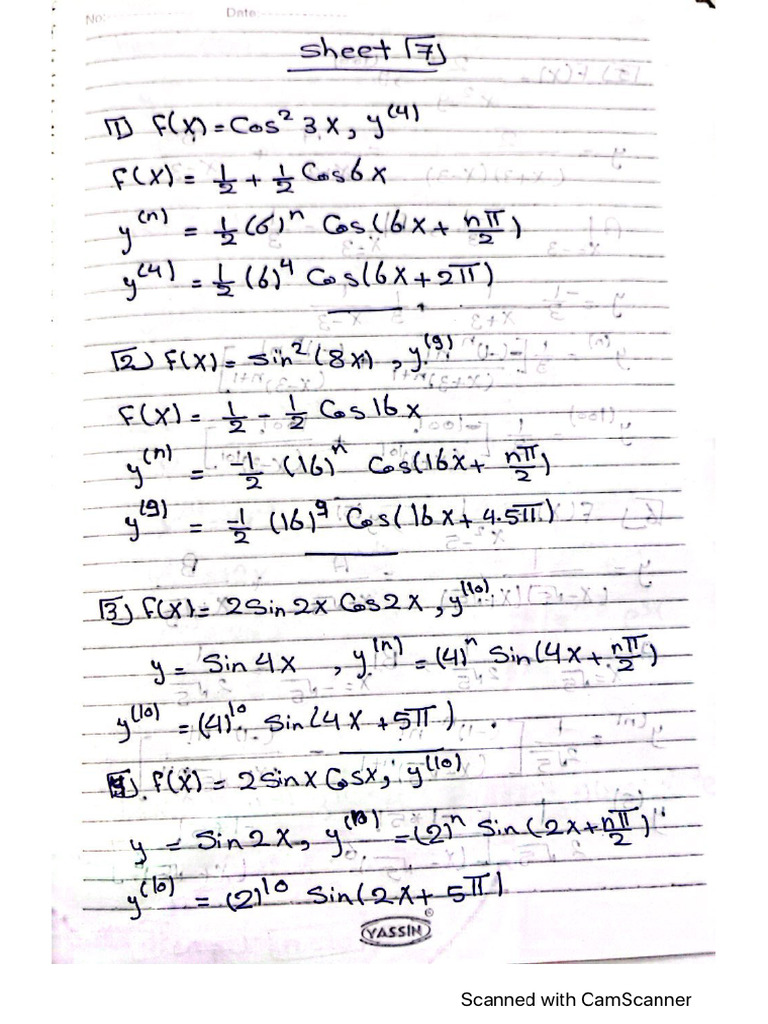 No: Date:
Sheet 7
1) F(x) = Cos² 3x, y⁽⁴⁾
F(x) = 1/2 + 1/2 Cos6x
y⁽ⁿ⁾ = 1/2 (6)ⁿ Cos(6x + nπ/2)
y⁽⁴⁾ = 1/2 (6)⁴ Cos(6x + 2π)
2) F(x) = Sin² (8x), y⁽⁹⁾
F(x) = 1/2 - 1/2 Cos16x
y⁽ⁿ⁾ = -1/2 (16)ⁿ Cos(16x + nπ/2)
y⁽⁹⁾ = -1/2 (16)⁹ Cos(16x + 4.5π)
3) F(x) = 2Sin2x Cos2x, y⁽¹⁰⁾
y = Sin4x, y⁽ⁿ⁾ = (4)ⁿ Sin(4x + nπ/2)
y⁽¹⁰⁾ = (4)¹⁰ Sin(4x + 5π)
4) F(x) = 2Sinx Cosx, y⁽¹⁰⁾
y = Sin2x, y⁽ⁿ⁾ = (2)ⁿ Sin(2x + nπ/2)
y⁽¹⁰⁾ = (2)¹⁰ Sin(2x + 5π)
YASSIN®
Scanned with CamScanner